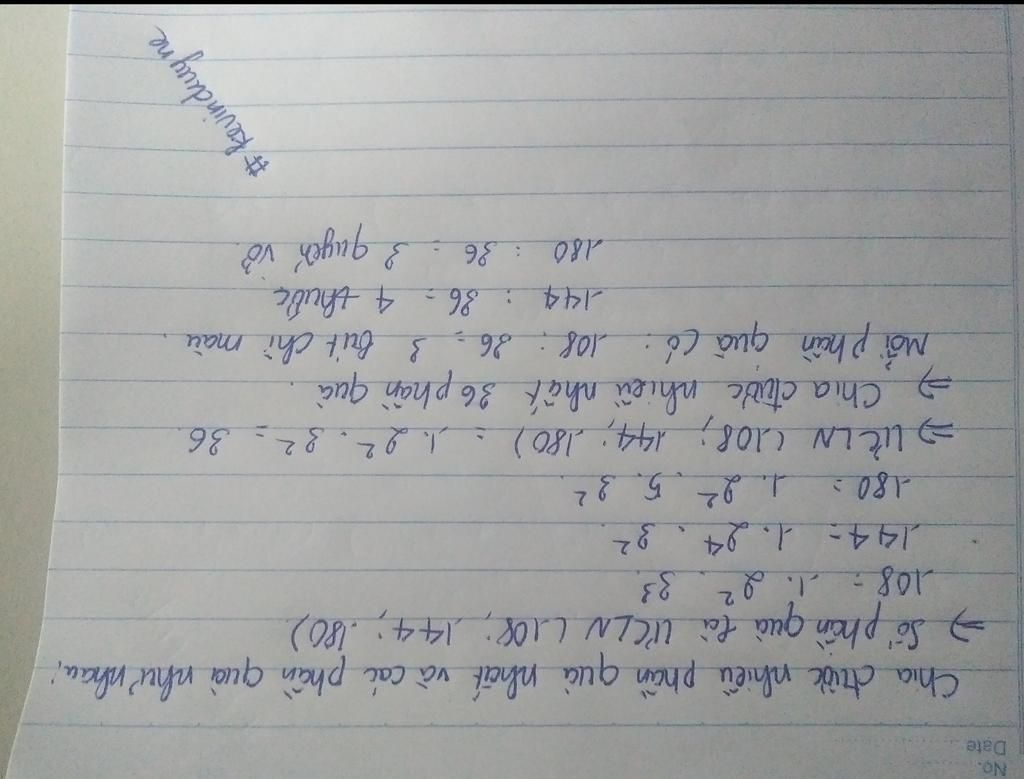 No.
Date
Chia được nhiều phần quà nhất và các phần quà như nhau,
=> Số phần quà là ƯCLN (108; 144; 180)
108 = 1. 2². 3³.
144 = 1. 2⁴. 3².
180 = 1. 2². 5. 3².
=> ƯCLN (108; 144; 180) = 1. 2². 3² = 36.
=> Chia được nhiều nhất 36 phần quà.
Mỗi phần quà có: 108 : 36 = 3 bút chì màu.
144 : 36 = 4 thước
180 : 36 = 3 quyển vở.
#kevinduyne